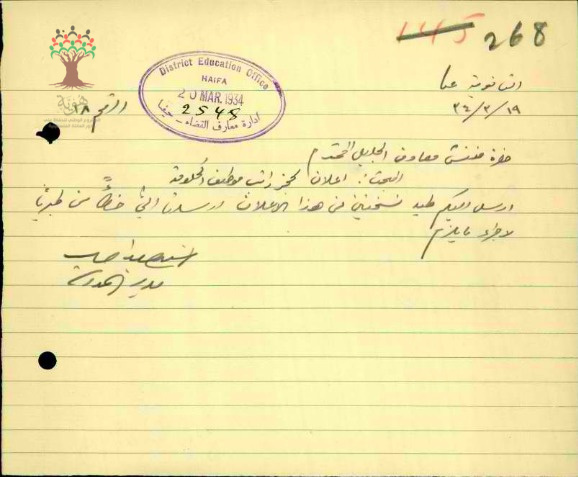 145 268
District Education Office
HAIFA
20 MAR. 1934
2548
إدارة معارف القضاء - حيفا
هوية
الثانوية عكا
١٩/٣/٣٤
الرقم ١٨
حضرة مفتش معارف الجليل المحترم
البحث: إعلان لحجز راتب موظف الحكومة
ارسل اليكم طيه نسختين من هذا الاعلان ارسلتا الي خطأً من طبريا
لاجراء ما يلزم
مدير المدرسة